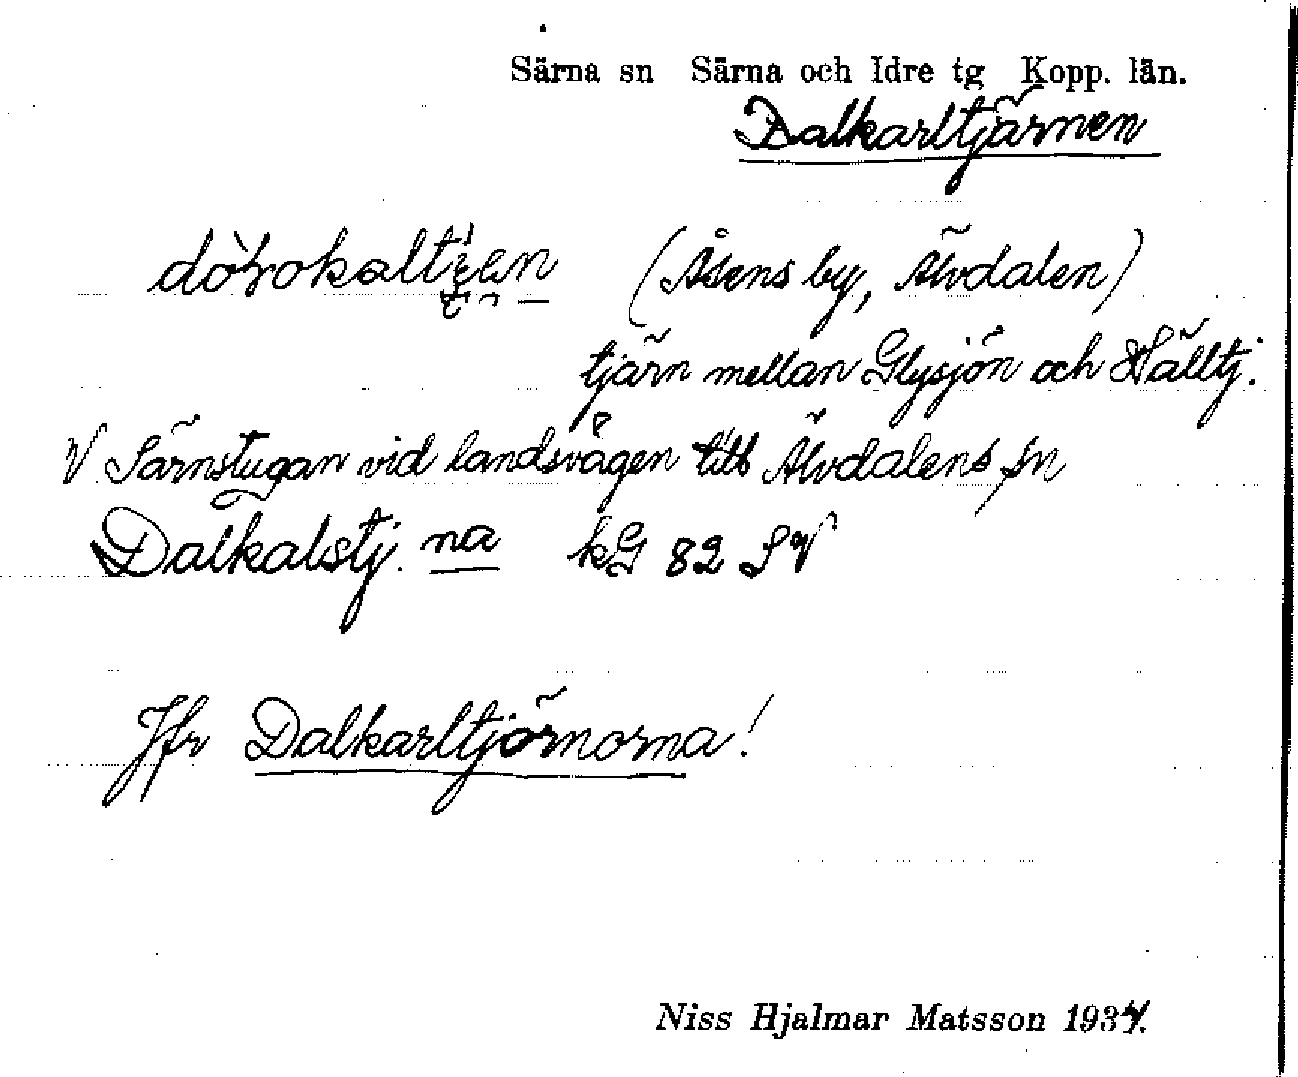 Särna sn Särna och Idre tg Kopp. län.
Dalkarltjärnen
(Åsens by, Älvdalen)
tjärn mellan Glysjön och Hälltj.
V Särnstugan vid landsvägen till Älvdalens sn
Dalkalstj. na kG 82 SV
Jfr Dalkarltjärnorna!
Niss Hjalmar Matsson 1934.